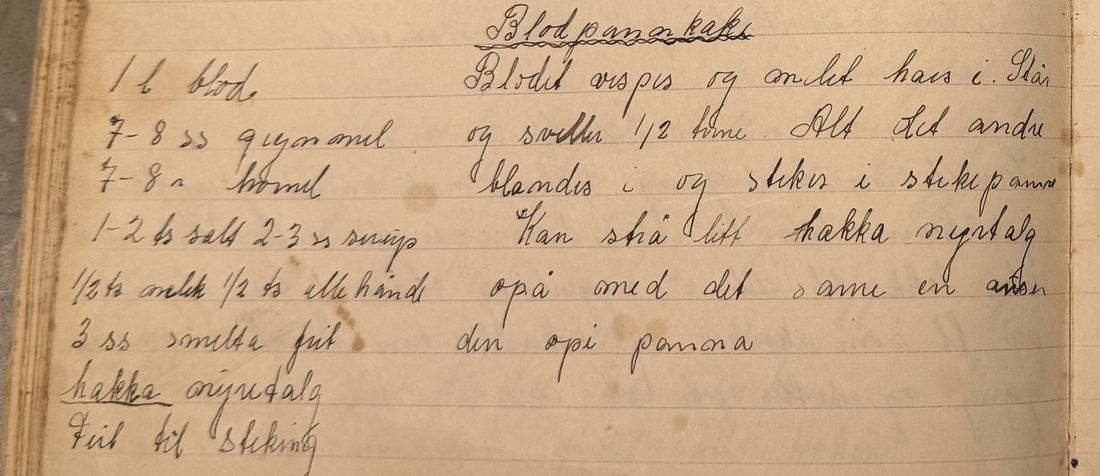 Blodpannkake
1 l blod
7-8 ss grynmel
7-8 "
1-2 ts salt 2-3 ss sirup
1/2 ts 1/2 ts allehånde
3 ss smelta feit
hakka nyretalg
Feit til steking
Blodet vispes og melet haes i. Står
og sveller 1/2 time. Alt det andre
blandes i og stekes i stekepanne
Kan strå litt hakka nyrtalg
opå med det same en auser
den opi panna